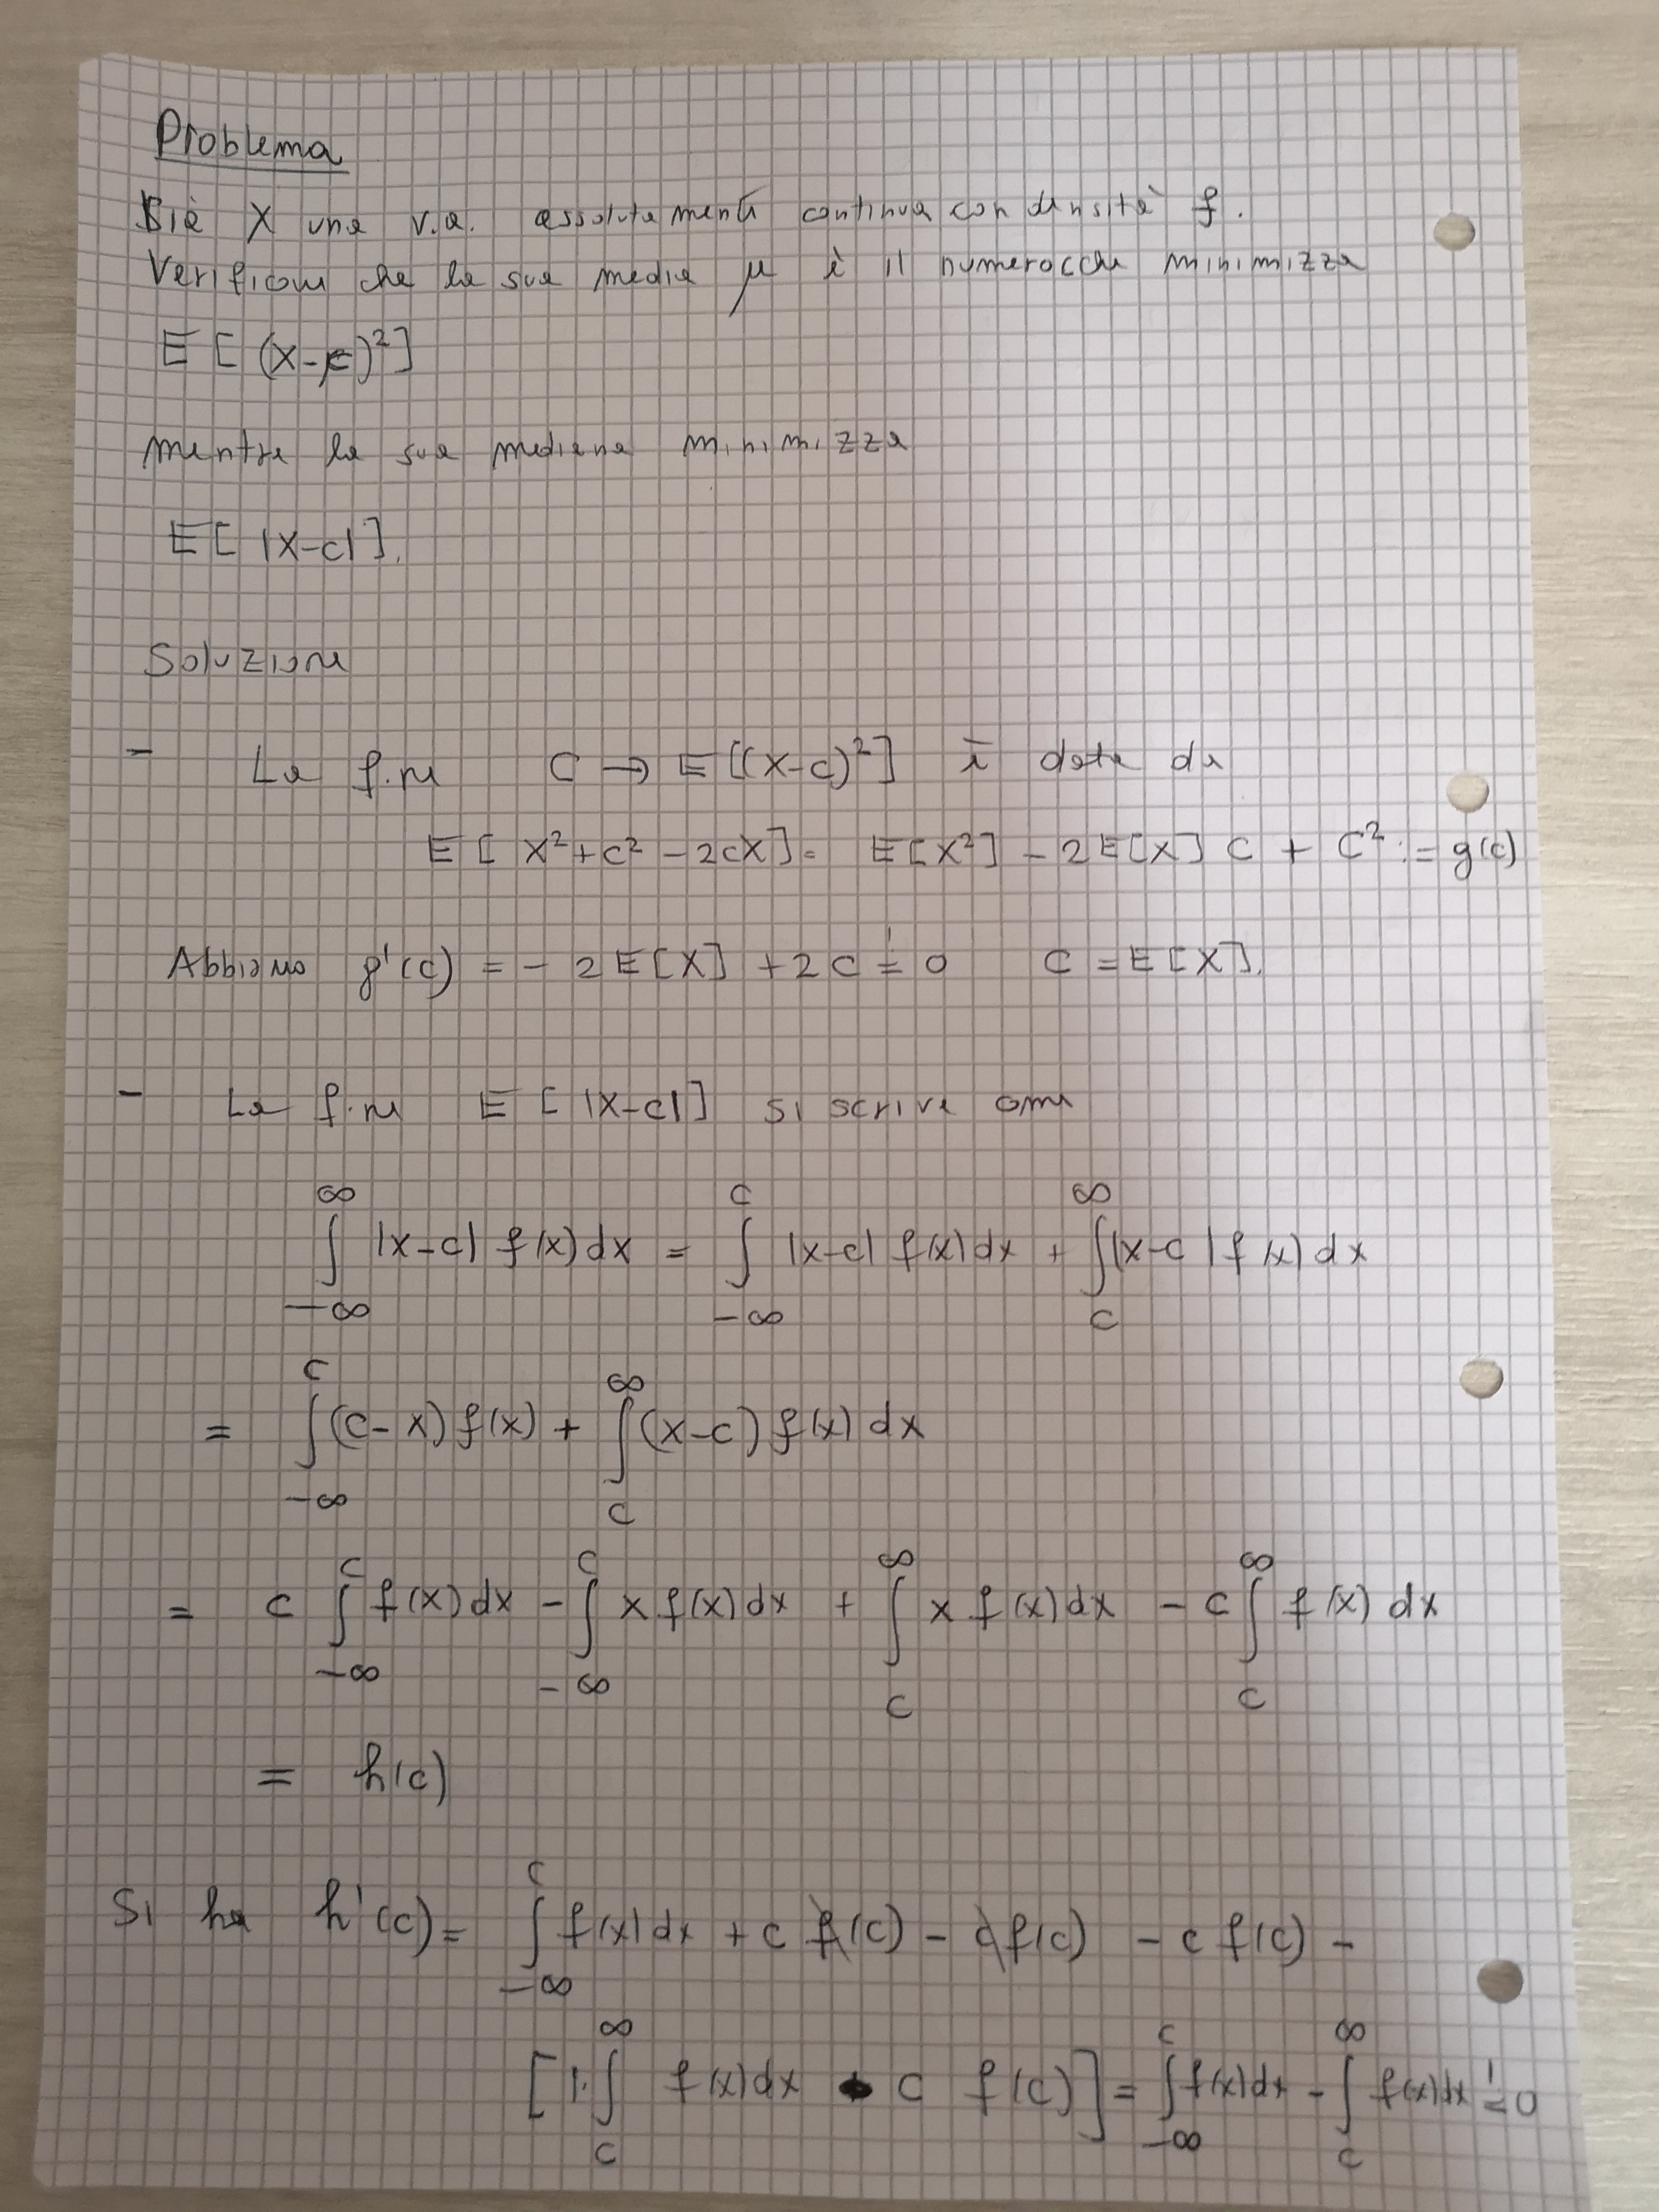 Problema
Sia X una v.a. assolutamente continua con densità f.
Verificare che la sua media μ è il numero che minimizza
E[(X-c)²]
mentre la sua mediana minimizza
E[|X-c|].
Soluzione
- La f.ne C → E[(X-c)²] è data da
E[X²+c²-2cX] = E[X²] - 2E[X]c + c² := g(c)
Abbiamo g'(c) = -2E[X] + 2c != 0 c = E[X].
- La f.ne E[|X-c|] si scrive come
∫_{-∞}^{∞} |x-c| f(x)dx = ∫_{-∞}^{c} |x-c| f(x)dx + ∫_{c}^{∞} |x-c| f(x)dx
= ∫_{-∞}^{c} (c-x) f(x) + ∫_{c}^{∞} (x-c) f(x)dx
= c ∫_{-∞}^{c} f(x)dx - ∫_{-∞}^{c} x f(x)dx + ∫_{c}^{∞} x f(x)dx - c ∫_{c}^{∞} f(x)dx
= h(c)
Si ha h'(c) = ∫_{-∞}^{c} f(x)dx + c f(c) - c f(c) - c f(c) -
[1·∫_{c}^{∞} f(x)dx - c f(c)] = ∫_{-∞}^{c} f(x)dx - ∫_{c}^{∞} f(x)dx != 0